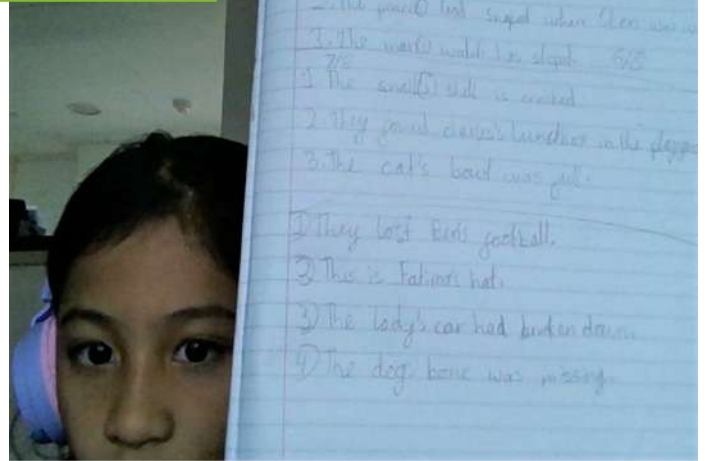 2. The pencil(s) lead snaped when Sten was
3. The man(s) watch has stoped. 6/8
7/8
1 The snail(s) shell is cracked
2. They found charles's lunchbox in the
3. The cat's bowl was full.
① They lost Ben's football.
② This is Fatima's hat.
③ The lady's car had broken down.
④ The dog bone was missing.